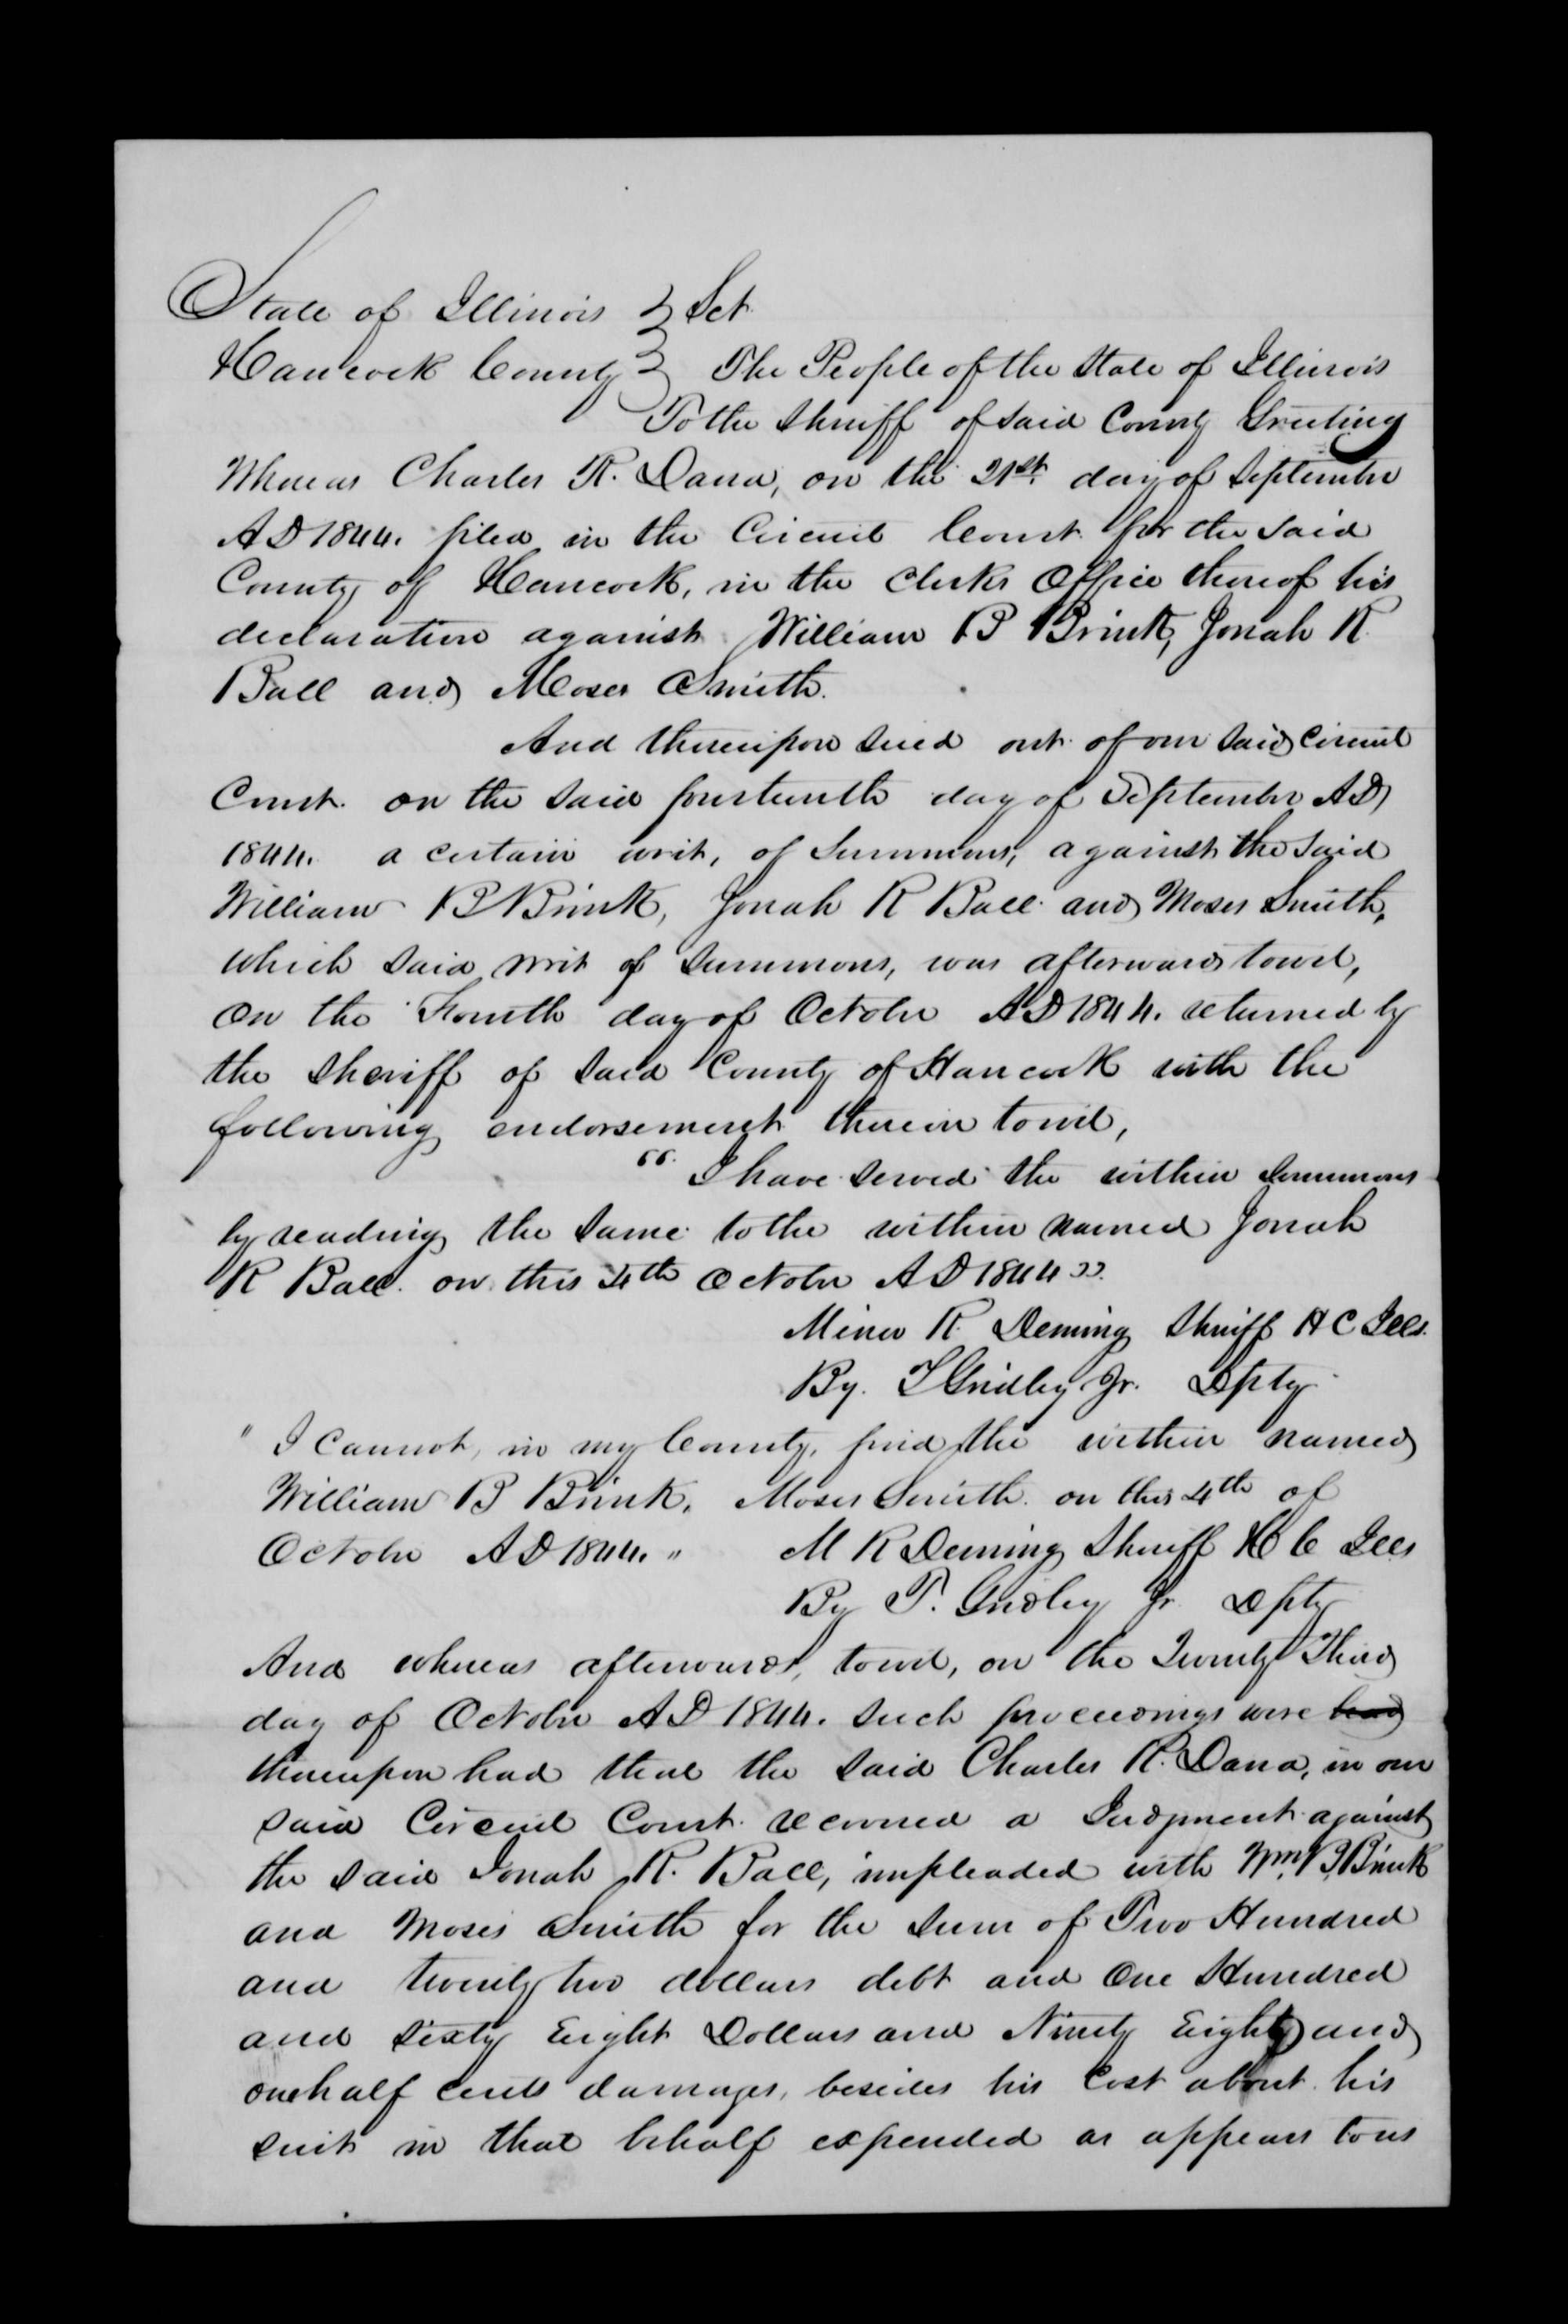 State of Illinois } Sct
Hancock County } The People of the State of Illinois
To the Sheriff of said County Greeting
Whereas Charles R. Dana, on the 21st day of September
A D 1844. filed in the Circuit Court for the said
County of Hancock, in the Clerks Office thereof his
declaration against William B Brink, Jonah R
Ball and Moses Smith.
And thereupon sued out of our said Circuit
Court on the said fourteenth day of September A D
1844. a certain writ, of Summons, against the said
William B Brink, Jonah R Ball and Moses Smith,
which said writ of Summons, was afterwards towit,
on the Fourth day of October A D 1844. returned by
the Sheriff of said County of Hancock with the
following endorsement therein towit,
" I have served the within Summons
by reading the same to the within named Jonah
R Ball on this 4th October A D 1844 ".
Minor R. Deming Sheriff H C Ills.
By. T Gridley Jr. Dpty
" I cannot, in my County, find the within named
William B Brink, Moses Smith on this 4th of
October A D 1844. " M R Deming Sheriff H C Ills
By T. Gridley Jr. Dpty
And whereas afterwards, towit, on the Twenty Third
day of October A D 1844. such proceedings were had
thereupon had that the said Charles R. Dana, in our
said Circuit Court recovered a Judgment against
the said Jonah R. Ball, impleaded with Wm. B. Brink
and Moses Smith for the sum of Two Hundred
and twenty two dollars debt and One Hundred
and Sixty Eight Dollars and Ninety Eight and
one half cents damages, besides his Cost about his
suit in that behalf expended as appears to us